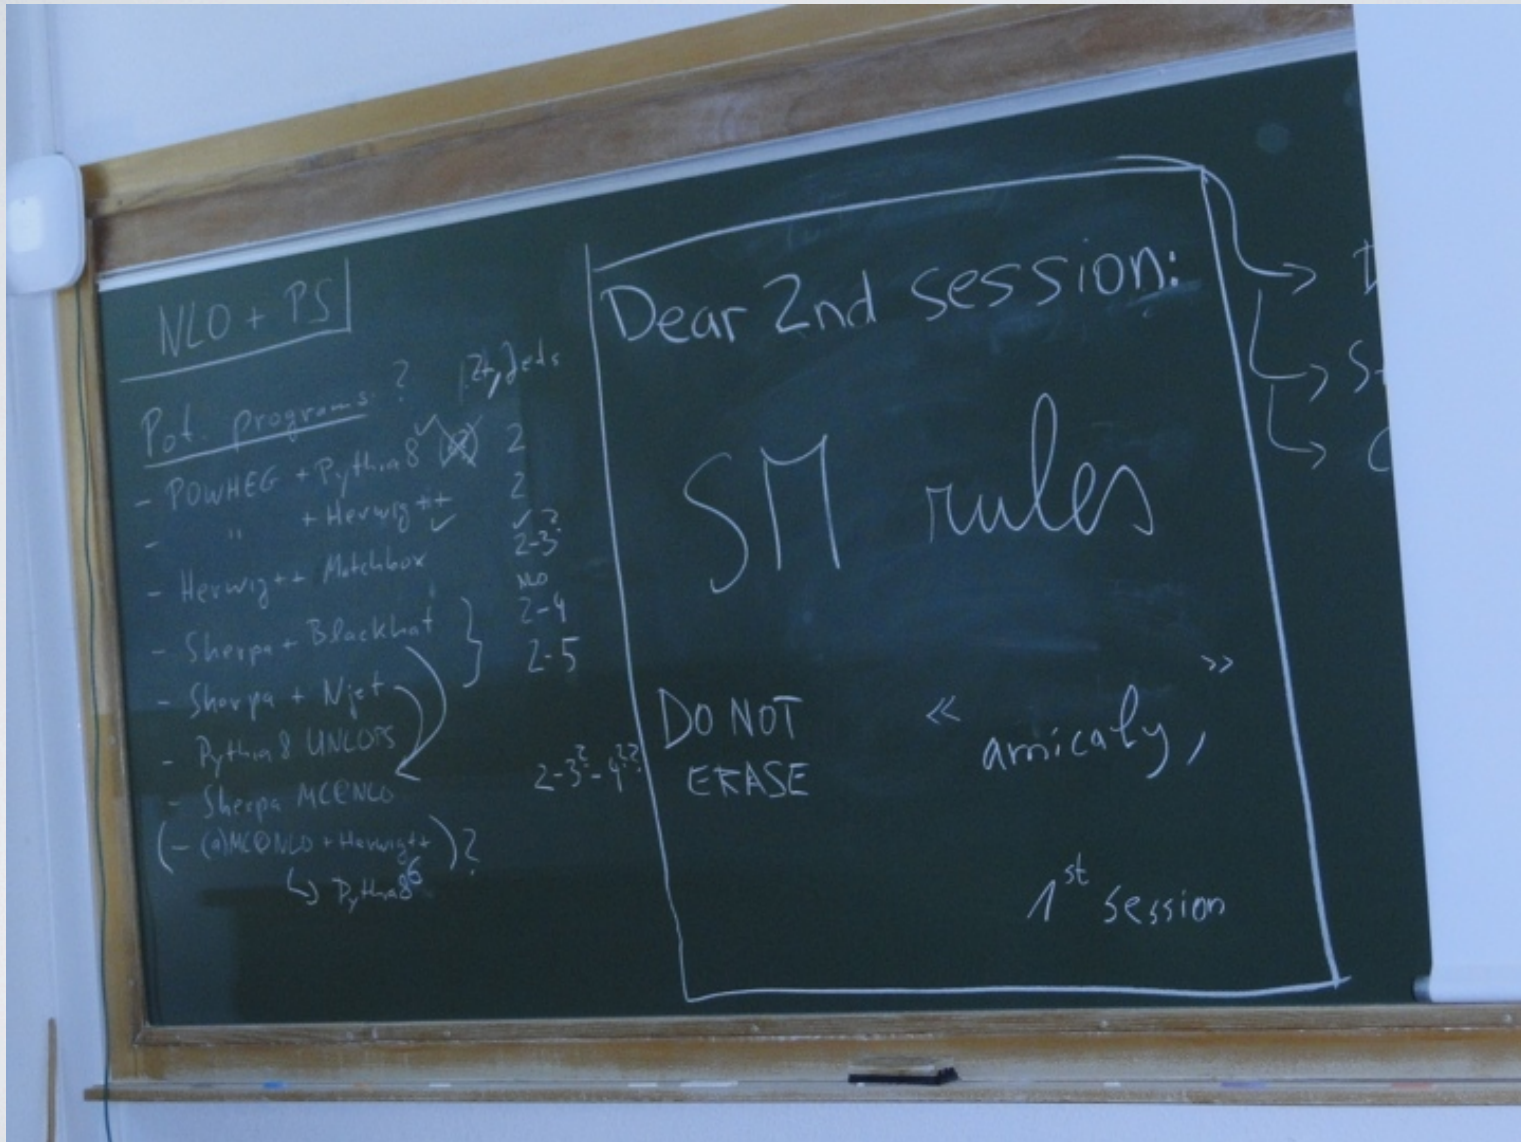 NLO + PS
Pot. programs: ?
Jets
- POWHEG + Pythia8 ✓ 2
- " + Herwig++ 2
- Herwig++ Matchbox ✓ ✓ 2-3?
NLO
- Sherpa + Blackhat } 2-4
- Sherpa + Njet 2-5
- Pythia8 UNLOPS
- Sherpa MC@NLO 2-3?-4??
(- (a)MC@NLO + Herwig++)?
↳ Pythia8 6
Dear 2nd session:
SM rules
DO NOT
ERASE
« amicaly, »
1st session